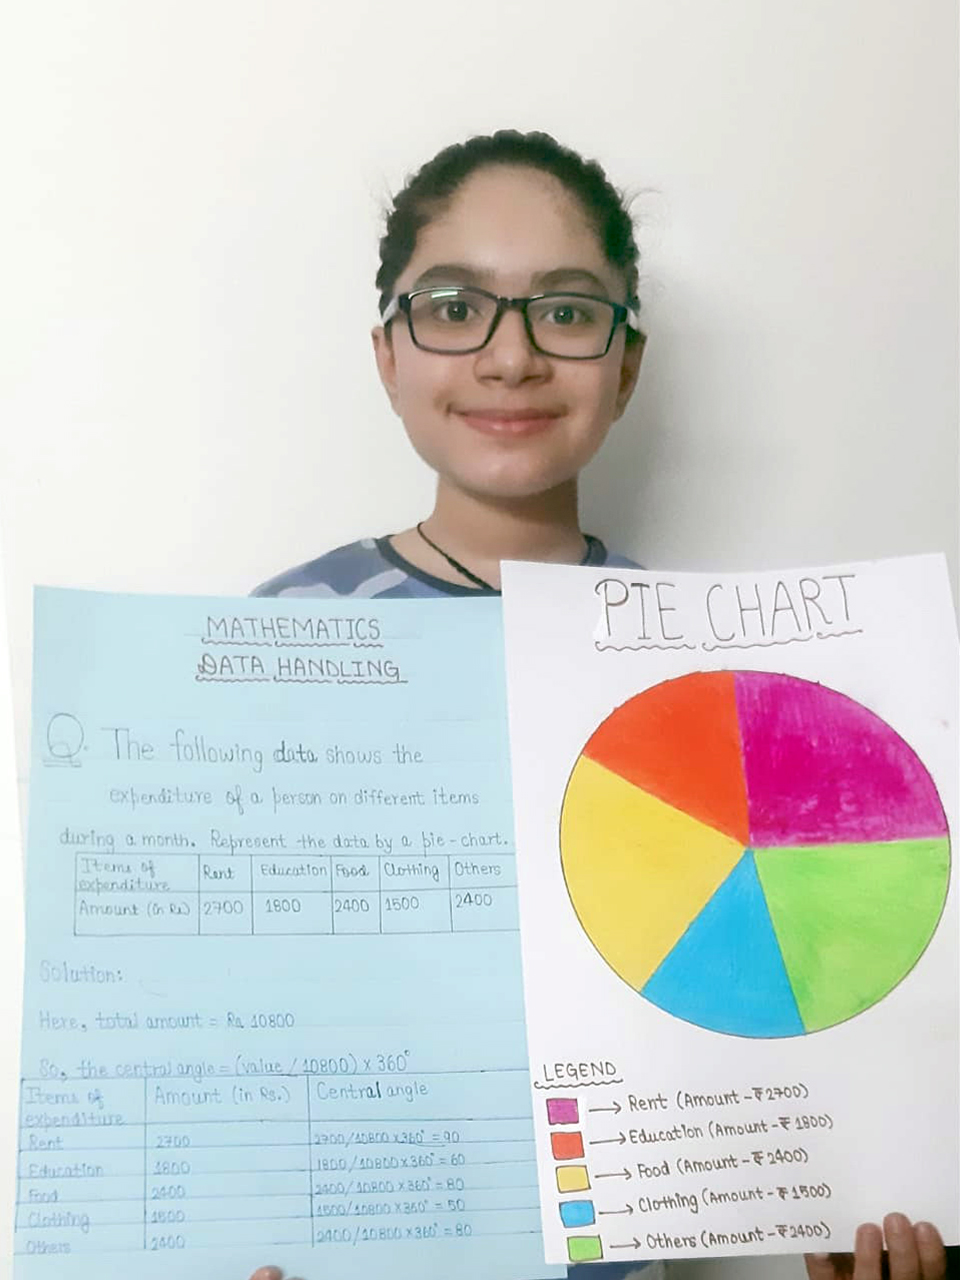 MATHEMATICS
DATA HANDLING
Q. The following data shows the
expenditure of a person on different items
during a month. Represent the data by a pie-chart.
Items of expenditure Rent Education Food Clothing Others
Amount (in Rs) 2700 1800 2400 1500 2400
Solution:
Here, total amount = Rs 10800
So, the central angle = (value / 10800) x 360°
Items of expenditure Amount (in Rs.) Central angle
Rent 2700 2700/10800 x 360° = 90
Education 1800 1800/10800 x 360° = 60
Food 2400 2400/10800 x 360° = 80
Clothing 1500 1500/10800 x 360° = 50
Others 2400 2400/10800 x 360° = 80
PIE CHART
LEGEND
→ Rent (Amount - ₹2700)
→ Education (Amount - ₹ 1800)
→ Food (Amount - ₹ 2400)
→ Clothing (Amount - ₹ 1500)
→ Others (Amount - ₹2400)